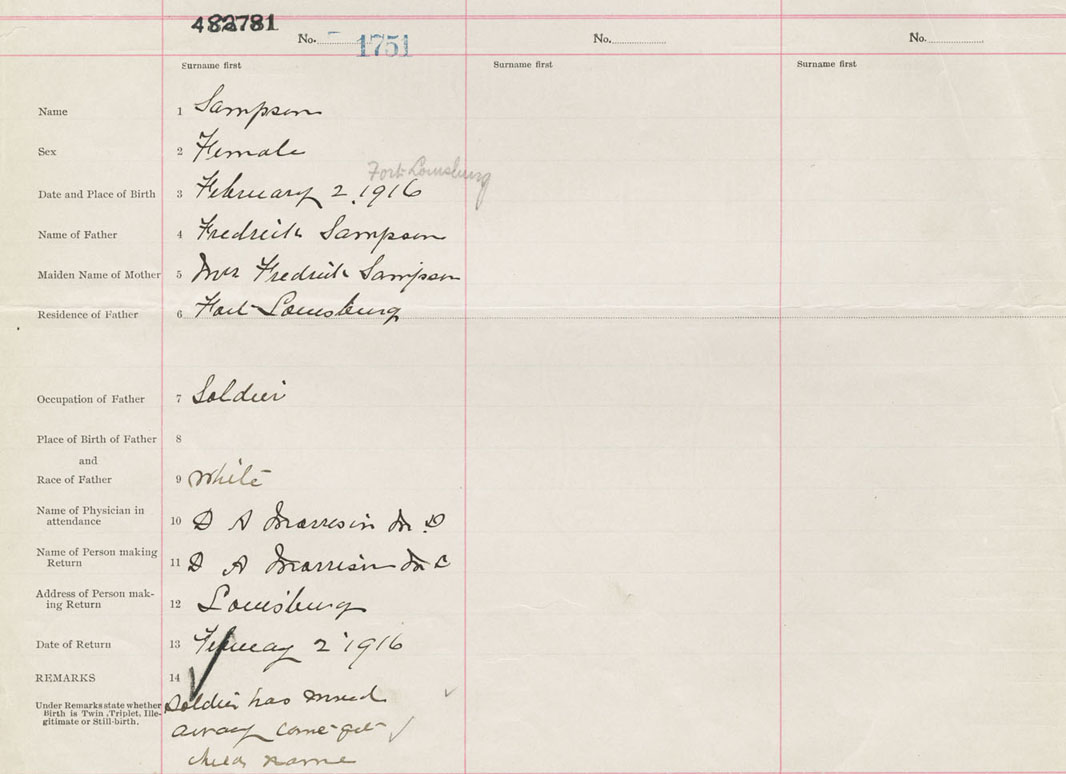 482781
No. 1751 No. No.
Surname first Surname first Surname first
Name 1 Sampson
Sex 2 Female
Fort Louisburg
Date and Place of Birth 3 February 2, 1916
Name of Father 4 Fredrick Sampson
Maiden Name of Mother 5 Mrs Fredrick Sampson
Residence of Father 6 Fort Louisburg
Occupation of Father 7 Soldier
Place of Birth of Father 8
and
Race of Father 9 White
Name of Physician in
attendance 10 D A Morrison M.D
Name of Person making
Return 11 D A Morrison M D
Address of Person mak-
ing Return 12 Louisburg
Date of Return 13 February 2 1916
REMARKS 14
Under Remarks state whether
Birth is Twin, Triplet, Ille-
gitimate or Still-birth.
Soldier has moved
away cant get
childs name